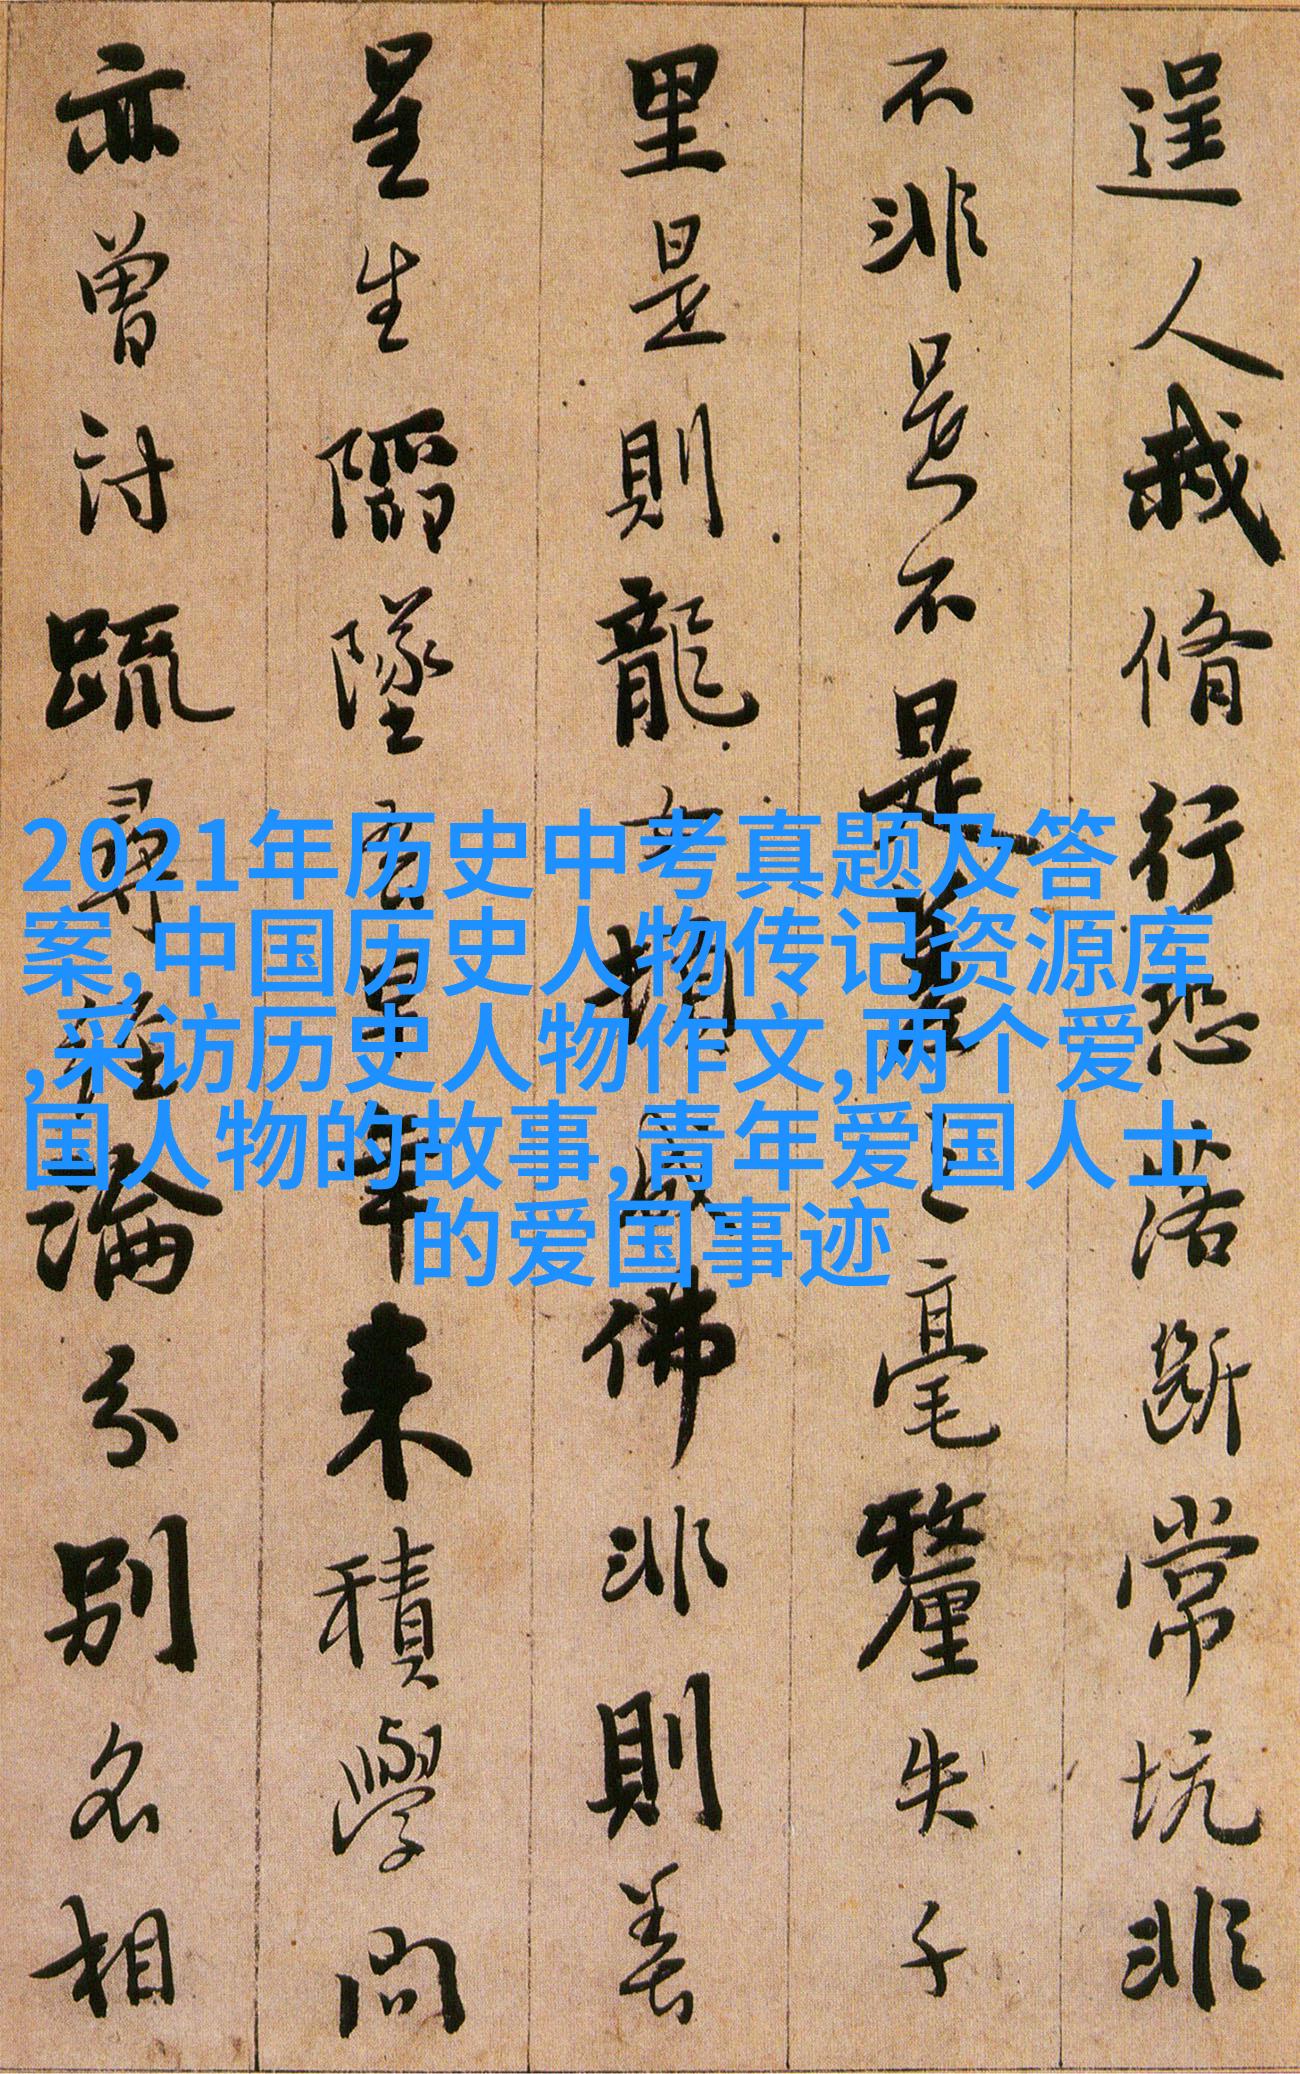 逞人我脩行恐落斷常坑非
不非是不是差之毫釐失千
里是則龍女頓成佛非則善
星生陷墜吾早年来積學問
亦曾討䟽尋經論分別名相
2021年历史中考真题及答
案,中国历史人物传记资源库
,采访历史人物作文,两个爱
国人物的故事,青年爱国人士
的爱国事迹